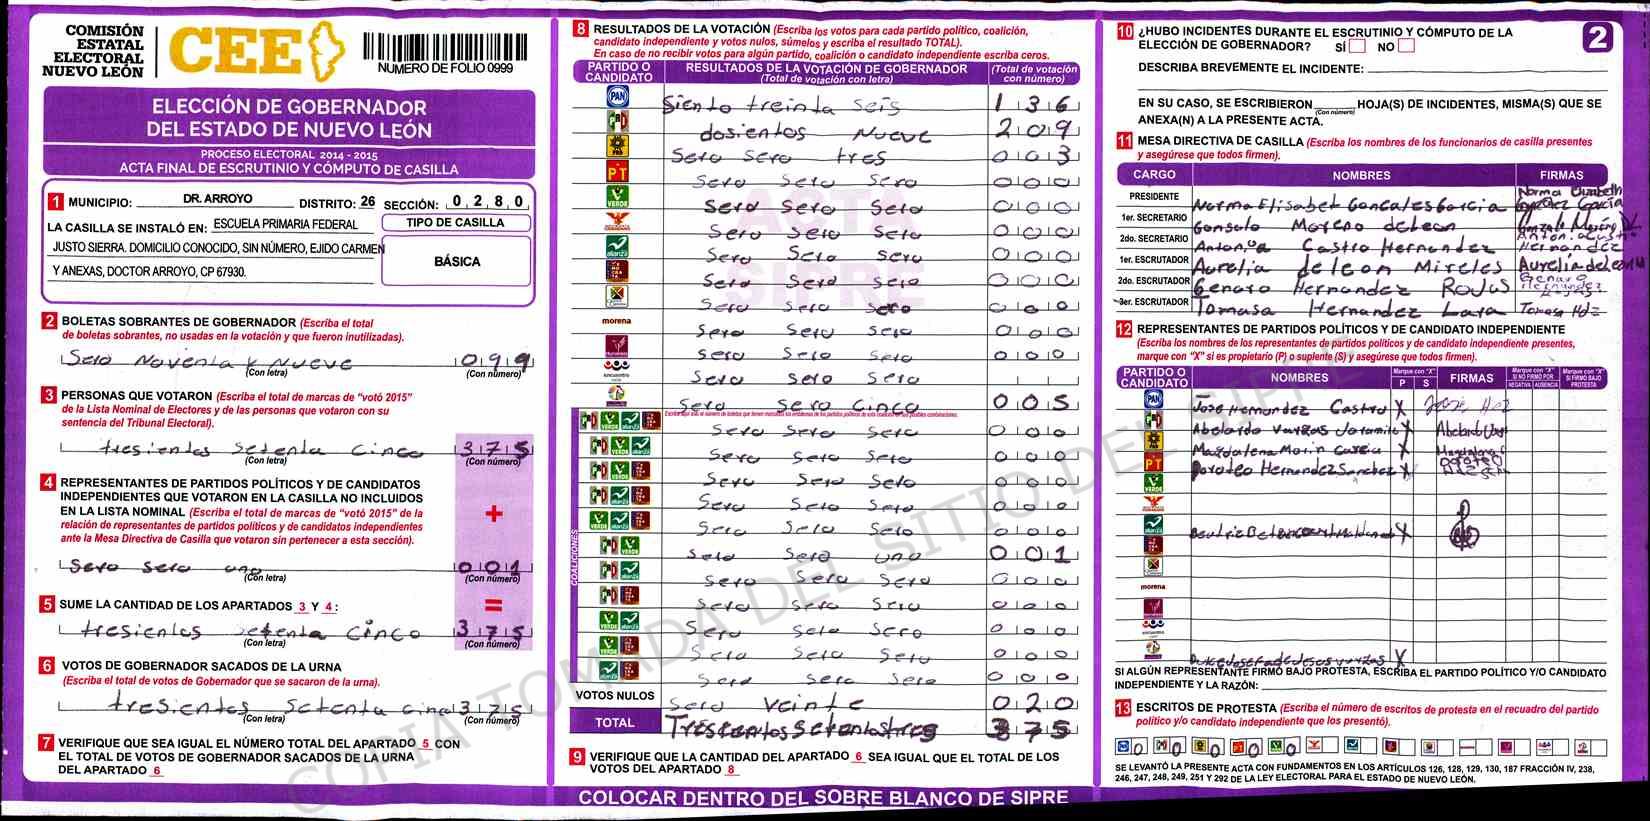 COMISIÓN
ESTATAL
ELECTORAL
NUEVO LEÓN
CEE
NUMERO DE FOLIO 0999
ELECCIÓN DE GOBERNADOR
DEL ESTADO DE NUEVO LEÓN
PROCESO ELECTORAL 2014 - 2015
ACTA FINAL DE ESCRUTINIO Y CÓMPUTO DE CASILLA
1 MUNICIPIO: DR. ARROYO DISTRITO: 26 SECCIÓN: 0 2 8 0
LA CASILLA SE INSTALÓ EN: ESCUELA PRIMARIA FEDERAL
JUSTO SIERRA. DOMICILIO CONOCIDO, SIN NÚMERO, EJIDO CARMEN
Y ANEXAS, DOCTOR ARROYO, CP 67930.
TIPO DE CASILLA
BÁSICA
2 BOLETAS SOBRANTES DE GOBERNADOR (Escriba el total
de boletas sobrantes, no usadas en la votación y que fueron inutilizadas).
Sero Noventa y Nueve 0 9 9
(Con letra) (Con número)
3 PERSONAS QUE VOTARON (Escriba el total de marcas de "votó 2015"
de la Lista Nominal de Electores y de las personas que votaron con su
sentencia del Tribunal Electoral).
tresientos setenta cinco 3 7 5
(Con letra) (Con número)
4 REPRESENTANTES DE PARTIDOS POLÍTICOS Y DE CANDIDATOS
INDEPENDIENTES QUE VOTARON EN LA CASILLA NO INCLUIDOS
EN LA LISTA NOMINAL (Escriba el total de marcas de "votó 2015" de la
relación de representantes de partidos políticos y de candidatos independientes
ante la Mesa Directiva de Casilla que votaron sin pertenecer a esta sección).
+
Sero sero uno 0 0 1
(Con letra) (Con número)
5 SUME LA CANTIDAD DE LOS APARTADOS 3 Y 4:
=
tresientos setenta cinco 3 7 5
(Con letra) (Con número)
6 VOTOS DE GOBERNADOR SACADOS DE LA URNA
(Escriba el total de votos de Gobernador que se sacaron de la urna).
tresientos setenta cinco 3 7 5
(Con letra) (Con número)
7 VERIFIQUE QUE SEA IGUAL EL NÚMERO TOTAL DEL APARTADO 5 CON
EL TOTAL DE VOTOS DE GOBERNADOR SACADOS DE LA URNA
DEL APARTADO 6
8 RESULTADOS DE LA VOTACIÓN (Escriba los votos para cada partido político, coalición,
candidato independiente y votos nulos, súmelos y escriba el resultado TOTAL).
En caso de no recibir votos para algún partido, coalición o candidato independiente escriba ceros.
PARTIDO O CANDIDATO RESULTADOS DE LA VOTACIÓN DE GOBERNADOR (Total de votación con letra) (Total de votación con número)
PAN Siento treinta seis 1 3 6
PRD dosientos Nueve 2 0 9
Sero sero tres 0 0 3
PT Sero Sero Sero 0 0 0
VERDE Sero Sero Sero 0 0 0
Sero Sero Sero 0 0 0
alianza Sero Sero Sero 0 0 0
Sero Sero Sero 0 0 0
Sero Sero Sero 0 0 0
morena Sero Sero Sero 0 0 0
Sero Sero Sero 0 0 0
encuentro Sero Sero Sero
Sero Sero Cinco 0 0 5
COALICIONES
Sero Sero Sero 0 0 0
Sero Sero Sero 0 0 0
Sero Sero Sero 0 0 0
Sero Sero Sero 0 0 0
Sero Sero Sero 0 0 0
Sero Sero uno 0 0 1
Sero Sero Sero 0 0 0
Sero Sero Sero 0 0 0
Sero Sero Sero 0 0 0
Sero Sero Sero 0 0 0
Sero Sero Sero 0 0 0
VOTOS NULOS Sero veinte 0 2 0
TOTAL 3 7 5
9 VERIFIQUE QUE LA CANTIDAD DEL APARTADO 6 SEA IGUAL QUE EL TOTAL DE LOS
VOTOS DEL APARTADO 8
COLOCAR DENTRO DEL SOBRE BLANCO DE SIPRE
ACTA
SIPRE
COPIA TOMADA DEL SITIO DEL SIPRE
2
10 ¿HUBO INCIDENTES DURANTE EL ESCRUTINIO Y CÓMPUTO DE LA
ELECCIÓN DE GOBERNADOR? SÍ NO
DESCRIBA BREVEMENTE EL INCIDENTE:
EN SU CASO, SE ESCRIBIERON (Con número) HOJA(S) DE INCIDENTES, MISMA(S) QUE SE
ANEXA(N) A LA PRESENTE ACTA.
11 MESA DIRECTIVA DE CASILLA (Escriba los nombres de los funcionarios de casilla presentes
y asegúrese que todos firmen).
CARGO NOMBRES FIRMAS
PRESIDENTE Norma Elisabet Gonzales Garcia Norma Elizabeth González García
1er. SECRETARIO Gonsalo Moreno deleon
2do. SECRETARIO Antonia Castro Hernandez
1er. ESCRUTADOR Aurelia deleon Mireles Aurelia de Leon M
2do. ESCRUTADOR Genaro Hernandez Rojas Genaro Hernandez
3er. ESCRUTADOR Tomasa Hernandez Lara Tomasa Hdz
12 REPRESENTANTES DE PARTIDOS POLÍTICOS Y DE CANDIDATO INDEPENDIENTE
(Escriba los nombres de los representantes de partidos políticos y de candidato independiente presentes,
marque con "X" si es propietario (P) o suplente (S) y asegúrese que todos firmen).
PARTIDO O CANDIDATO NOMBRES Marque con "X" P S FIRMAS Marque con "X" SI NO FIRMÓ POR NEGATIVA AUSENCIA Marque con "X" SI FIRMÓ BAJO PROTESTA
PAN Jose Hernandez Castro X
Abelardo Vargas Jaramillo X
Magdalena Morin Garcia X
PT Doroteo Hernandez Sanchez X
VERDE
alianza Beatriz X
morena
X
SI ALGÚN REPRESENTANTE FIRMÓ BAJO PROTESTA, ESCRIBA EL PARTIDO POLÍTICO Y/O CANDIDATO
INDEPENDIENTE Y LA RAZÓN:
13 ESCRITOS DE PROTESTA (Escriba el número de escritos de protesta en el recuadro del partido
político y/o candidato independiente que los presentó).
0 0 0 0 0
SE LEVANTÓ LA PRESENTE ACTA CON FUNDAMENTOS EN LOS ARTÍCULOS 126, 128, 129, 130, 187 FRACCIÓN IV, 238,
246, 247, 248, 249, 251 Y 292 DE LA LEY ELECTORAL PARA EL ESTADO DE NUEVO LEÓN.